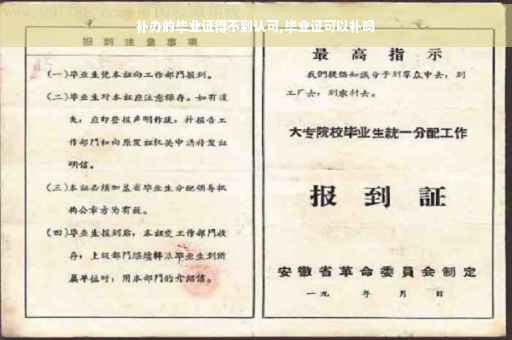 补办的毕业证得不到认可,毕业证可以补吗
报到注意事项
(一)毕业生凭本证向工作部门报到。
(二)毕业生对本证应注意保存。如有遗
失,应即登报声明作废,并报告工
作部门和向原发证机关申请补发证
明信。
(三)本证必须加盖省毕业生分配领导机
构公章方为有效。
(四)毕业生报到后,本证交工作部门收
存;上级部门继续转派毕业生到所
属单位时,用本部门的介绍信。
最高指示
我们提倡知识分子到羣众中去,到
工厂去,到农村去。
大专院校毕业生統一分配工作
报到証
安徽省革命委員会制定
一九 年 月 日